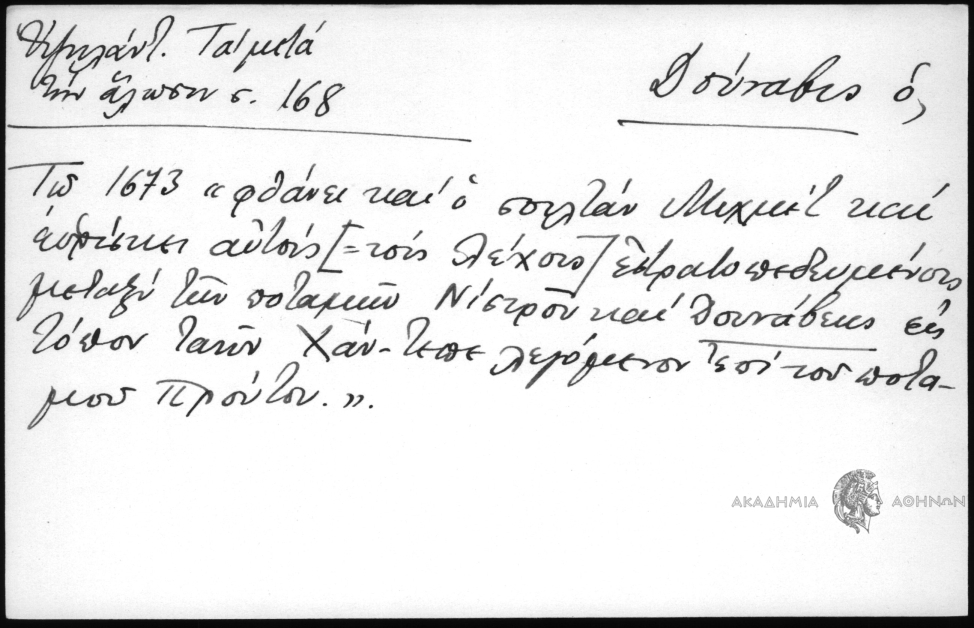 Ὑψηλάντ. Τά μετά
τήν ἅλωσιν σ. 168
Δούναβις ὁ,
Τῷ 1673 «φθάνει καί ὁ σουλτάν Μεχμέτ καί
εὑρίσκει αὐτούς [=τούς Λέχους] ἐστρατοπεδευμένους
μεταξύ τῶν ποταμῶν Νίστρου καί Δουνάβεως εἰς
τόπον Χάν-τεπε λεγόμενον ἐπί του ποτα-
μου Προύτου.».
ΑΚΑΔΗΜΙΑ ΑΘΗΝΩΝ